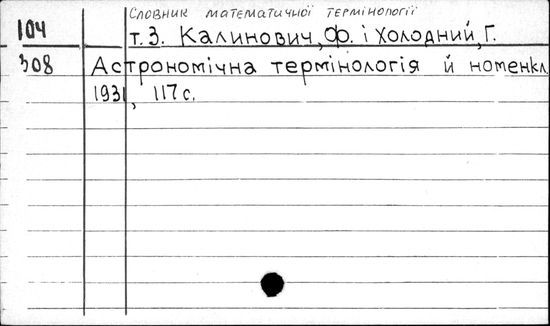 Словник математичної термінології
104 т.3. Калинович, Ф. і Холодний, Г.
308 Астрономічна термінологія й номенкл.
1931, 117 с.